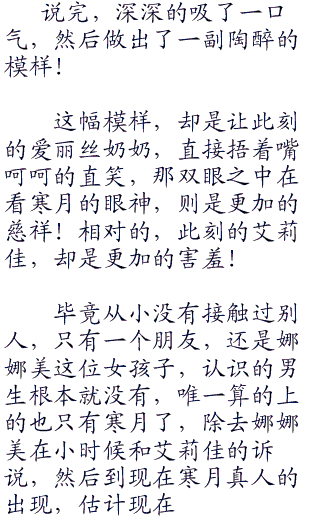 说完，深深的吸了一口
气，然后做出了一副陶醉的
模样！
这幅模样，却是让此刻
的爱丽丝奶奶，直接捂着嘴
呵呵的直笑，那双眼之中在
看寒月的眼神，则是更加的
慈祥！相对的，此刻的艾莉
佳，却是更加的害羞！
毕竟从小没有接触过别
人，只有一个朋友，还是娜
娜美这位女孩子，认识的男
生根本就没有，唯一算的上
的也只有寒月了，除去娜娜
美在小时候和艾莉佳的诉
说，然后到现在寒月真人的
出现，估计现在